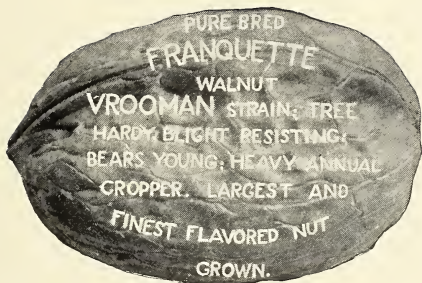 PURE BRED
FRANQUETTE
WALNUT
VROOMAN STRAIN; TREE
HARDY; BLIGHT RESISTING;
BEARS YOUNG; HEAVY ANNUAL
CROPPER. LARGEST AND
FINEST FLAVORED NUT
GROWN.